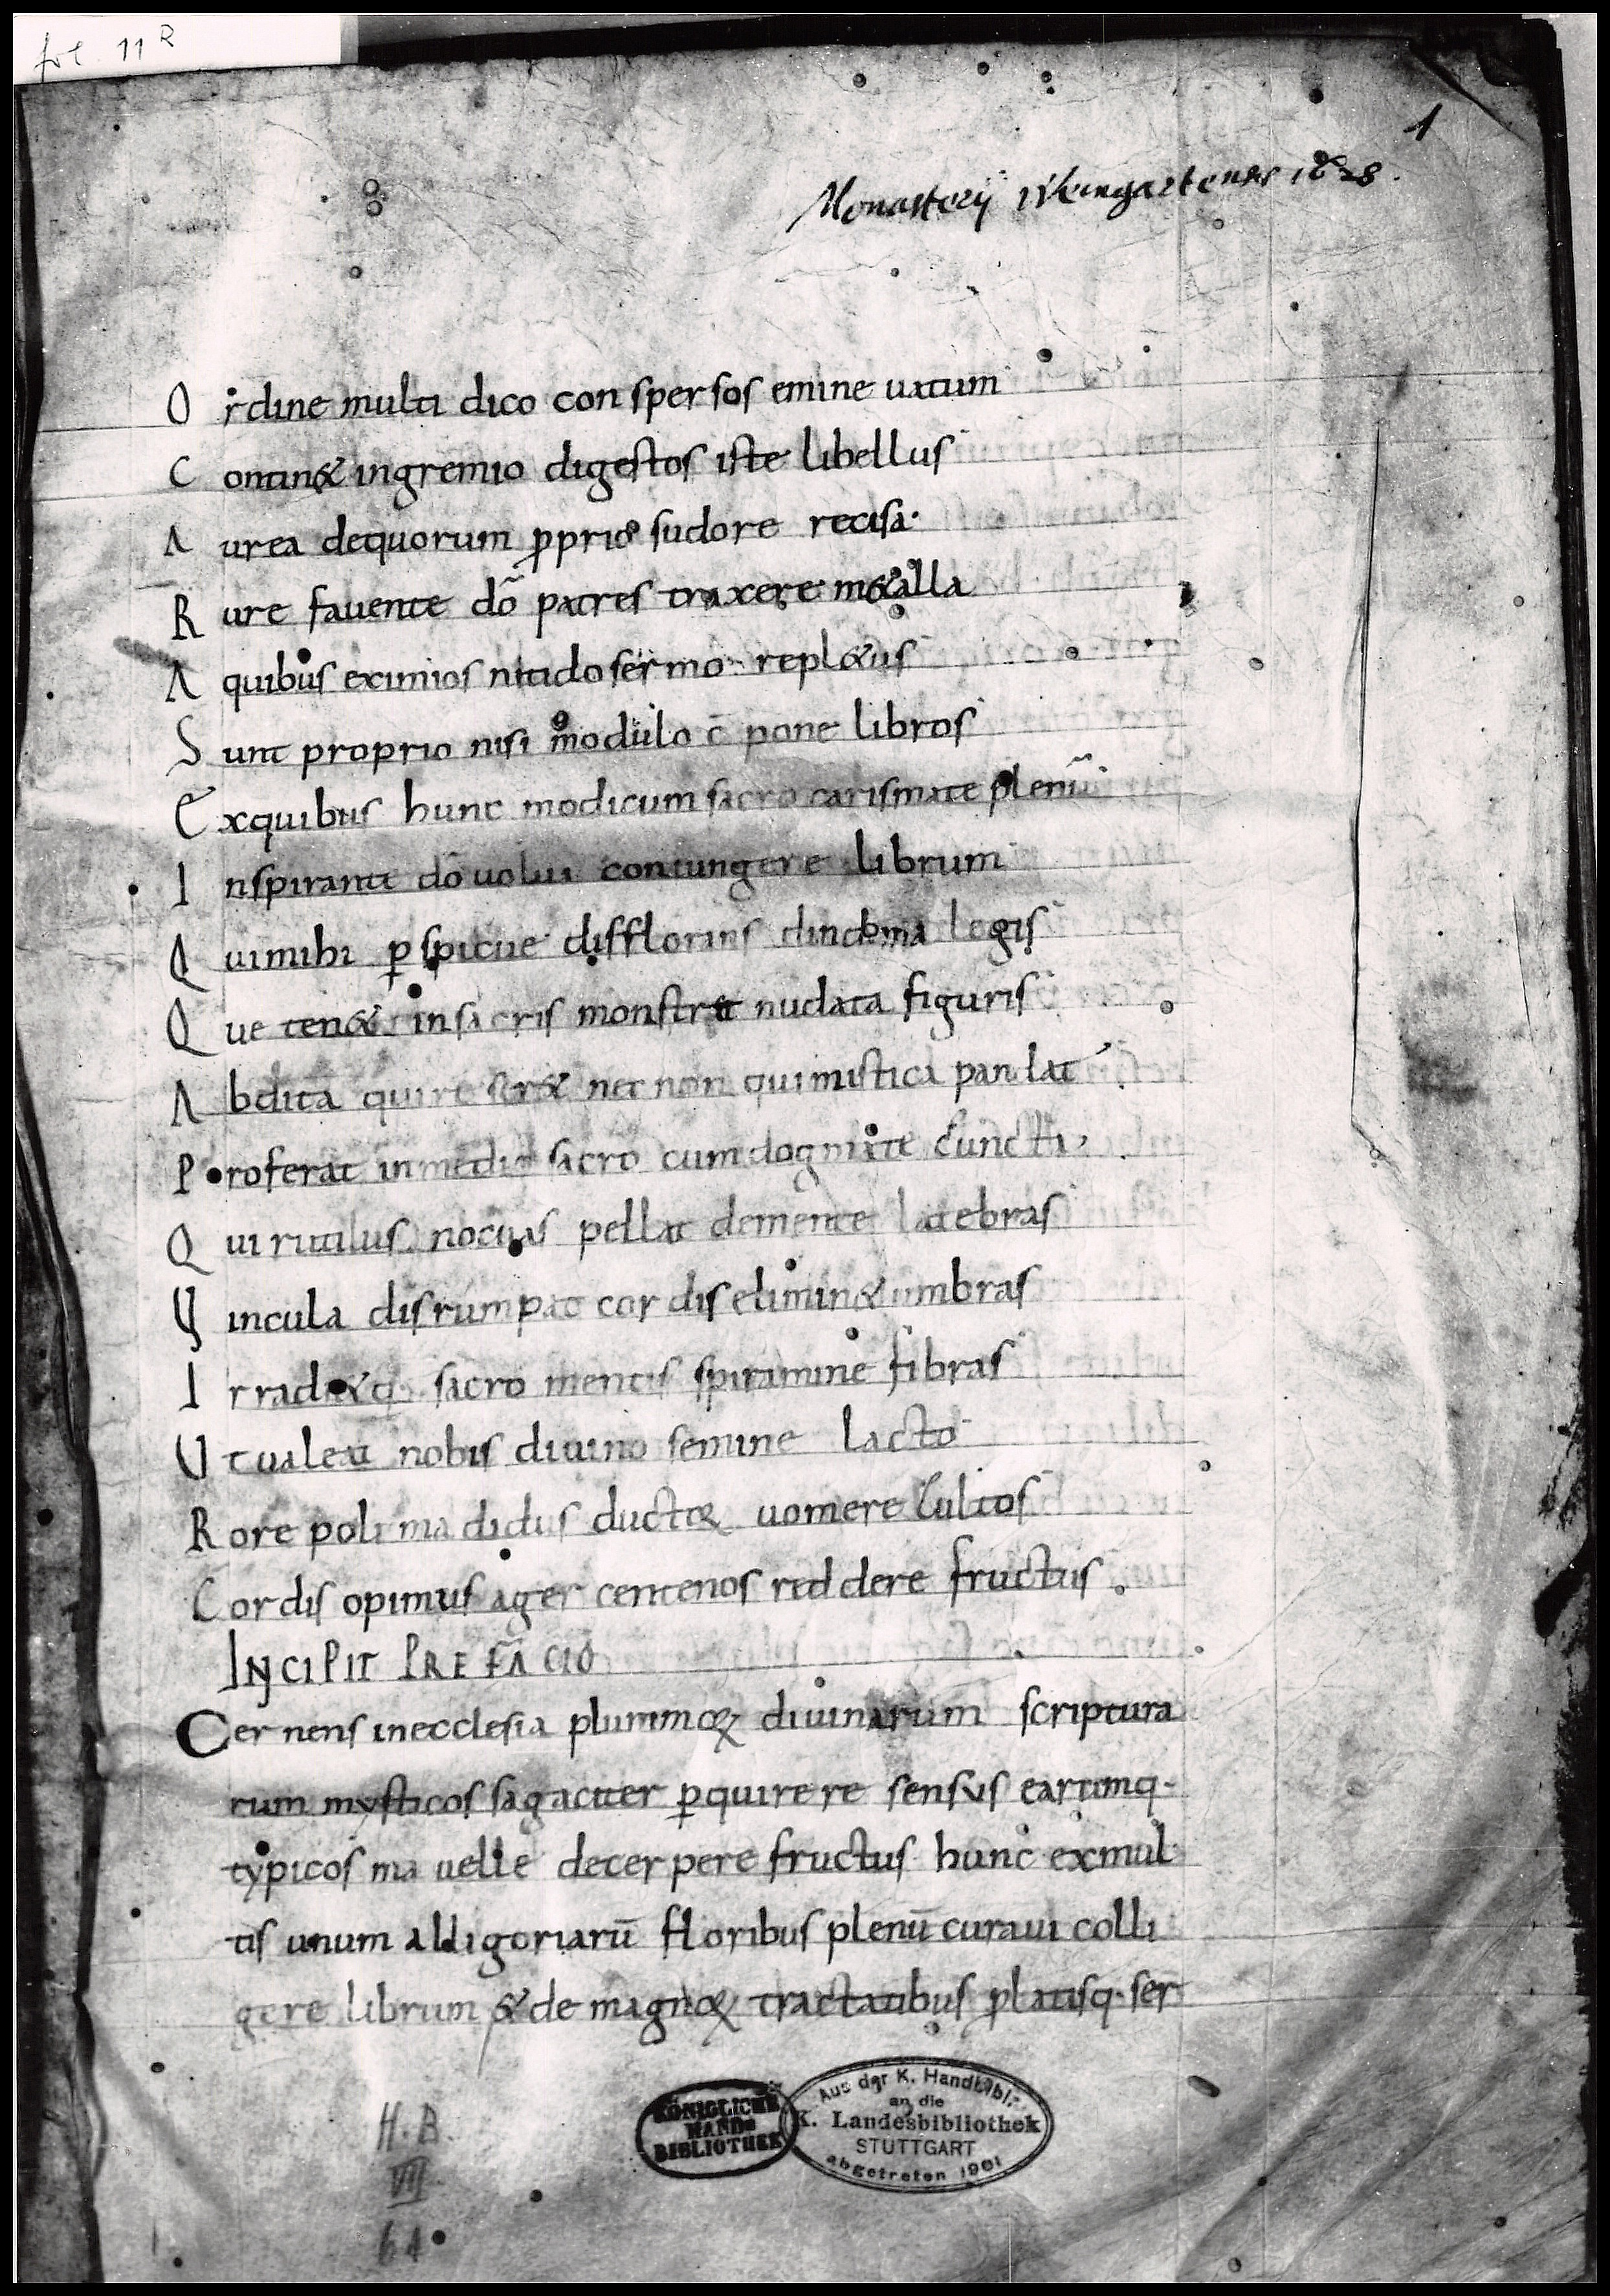 fol. 11R
1
Monasterij Weingartensis 1628.
O rdine multi dico conspersos emine uatum
C ontin& ingremio digestos iste libellus
A urea dequorum ꝓprio sudore recisa·
R ure fauente dō patres traxere m&alla
A quibus eximios nitido sermo repl&us
S unt proprio nisi modulo c̄ pone libros
E xquibus hunc modicum sacro carismate plenū
I nspirante dō uolui coniungere librum
Q uimihi ꝑspicue disflorans legis
Q ue ten& insacris nudata figuris
A bdita nec non quimistica pandat
P roferat inmedio sacro cumdogmate cuncti,
Q ui rutilus nocuas pellat demente latebras
U incula disrumpat cordis elimin& umbras
I rradi&q· sacro mentis spiramine fibras
U t ualeat nobis diuino semine lacto
R ore poli madidus ductoq; uomere cultos
C ordis opimus ager centenos reddere fructus.
INCIPIT PREFACIO
Cernens inecclesia plurimoq; diuinarum scriptura
rum mysticos sagaciter ꝑquirere sensus earumq·
typicos mauelle decerpere fructus hunc exmul
tis unum alligoriarū floribus plenū curaui colli
gere librum &de magnoq; tractatibus ꝓlatisq· ser
H.B.
VII
64
KÖNIGLICHE
HAND-
BIBLIOTHEK
Aus der K. Handbibl.
an die
K. Landesbibliothek
STUTTGART
abgetreten 1901